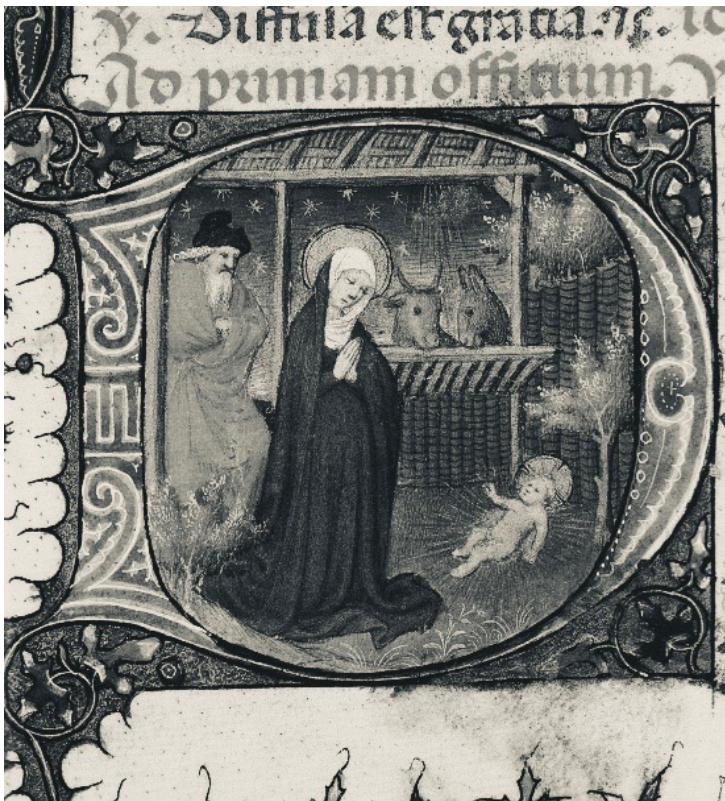 ℣. Diffusa est gratia.
Ad primam offitium.
D